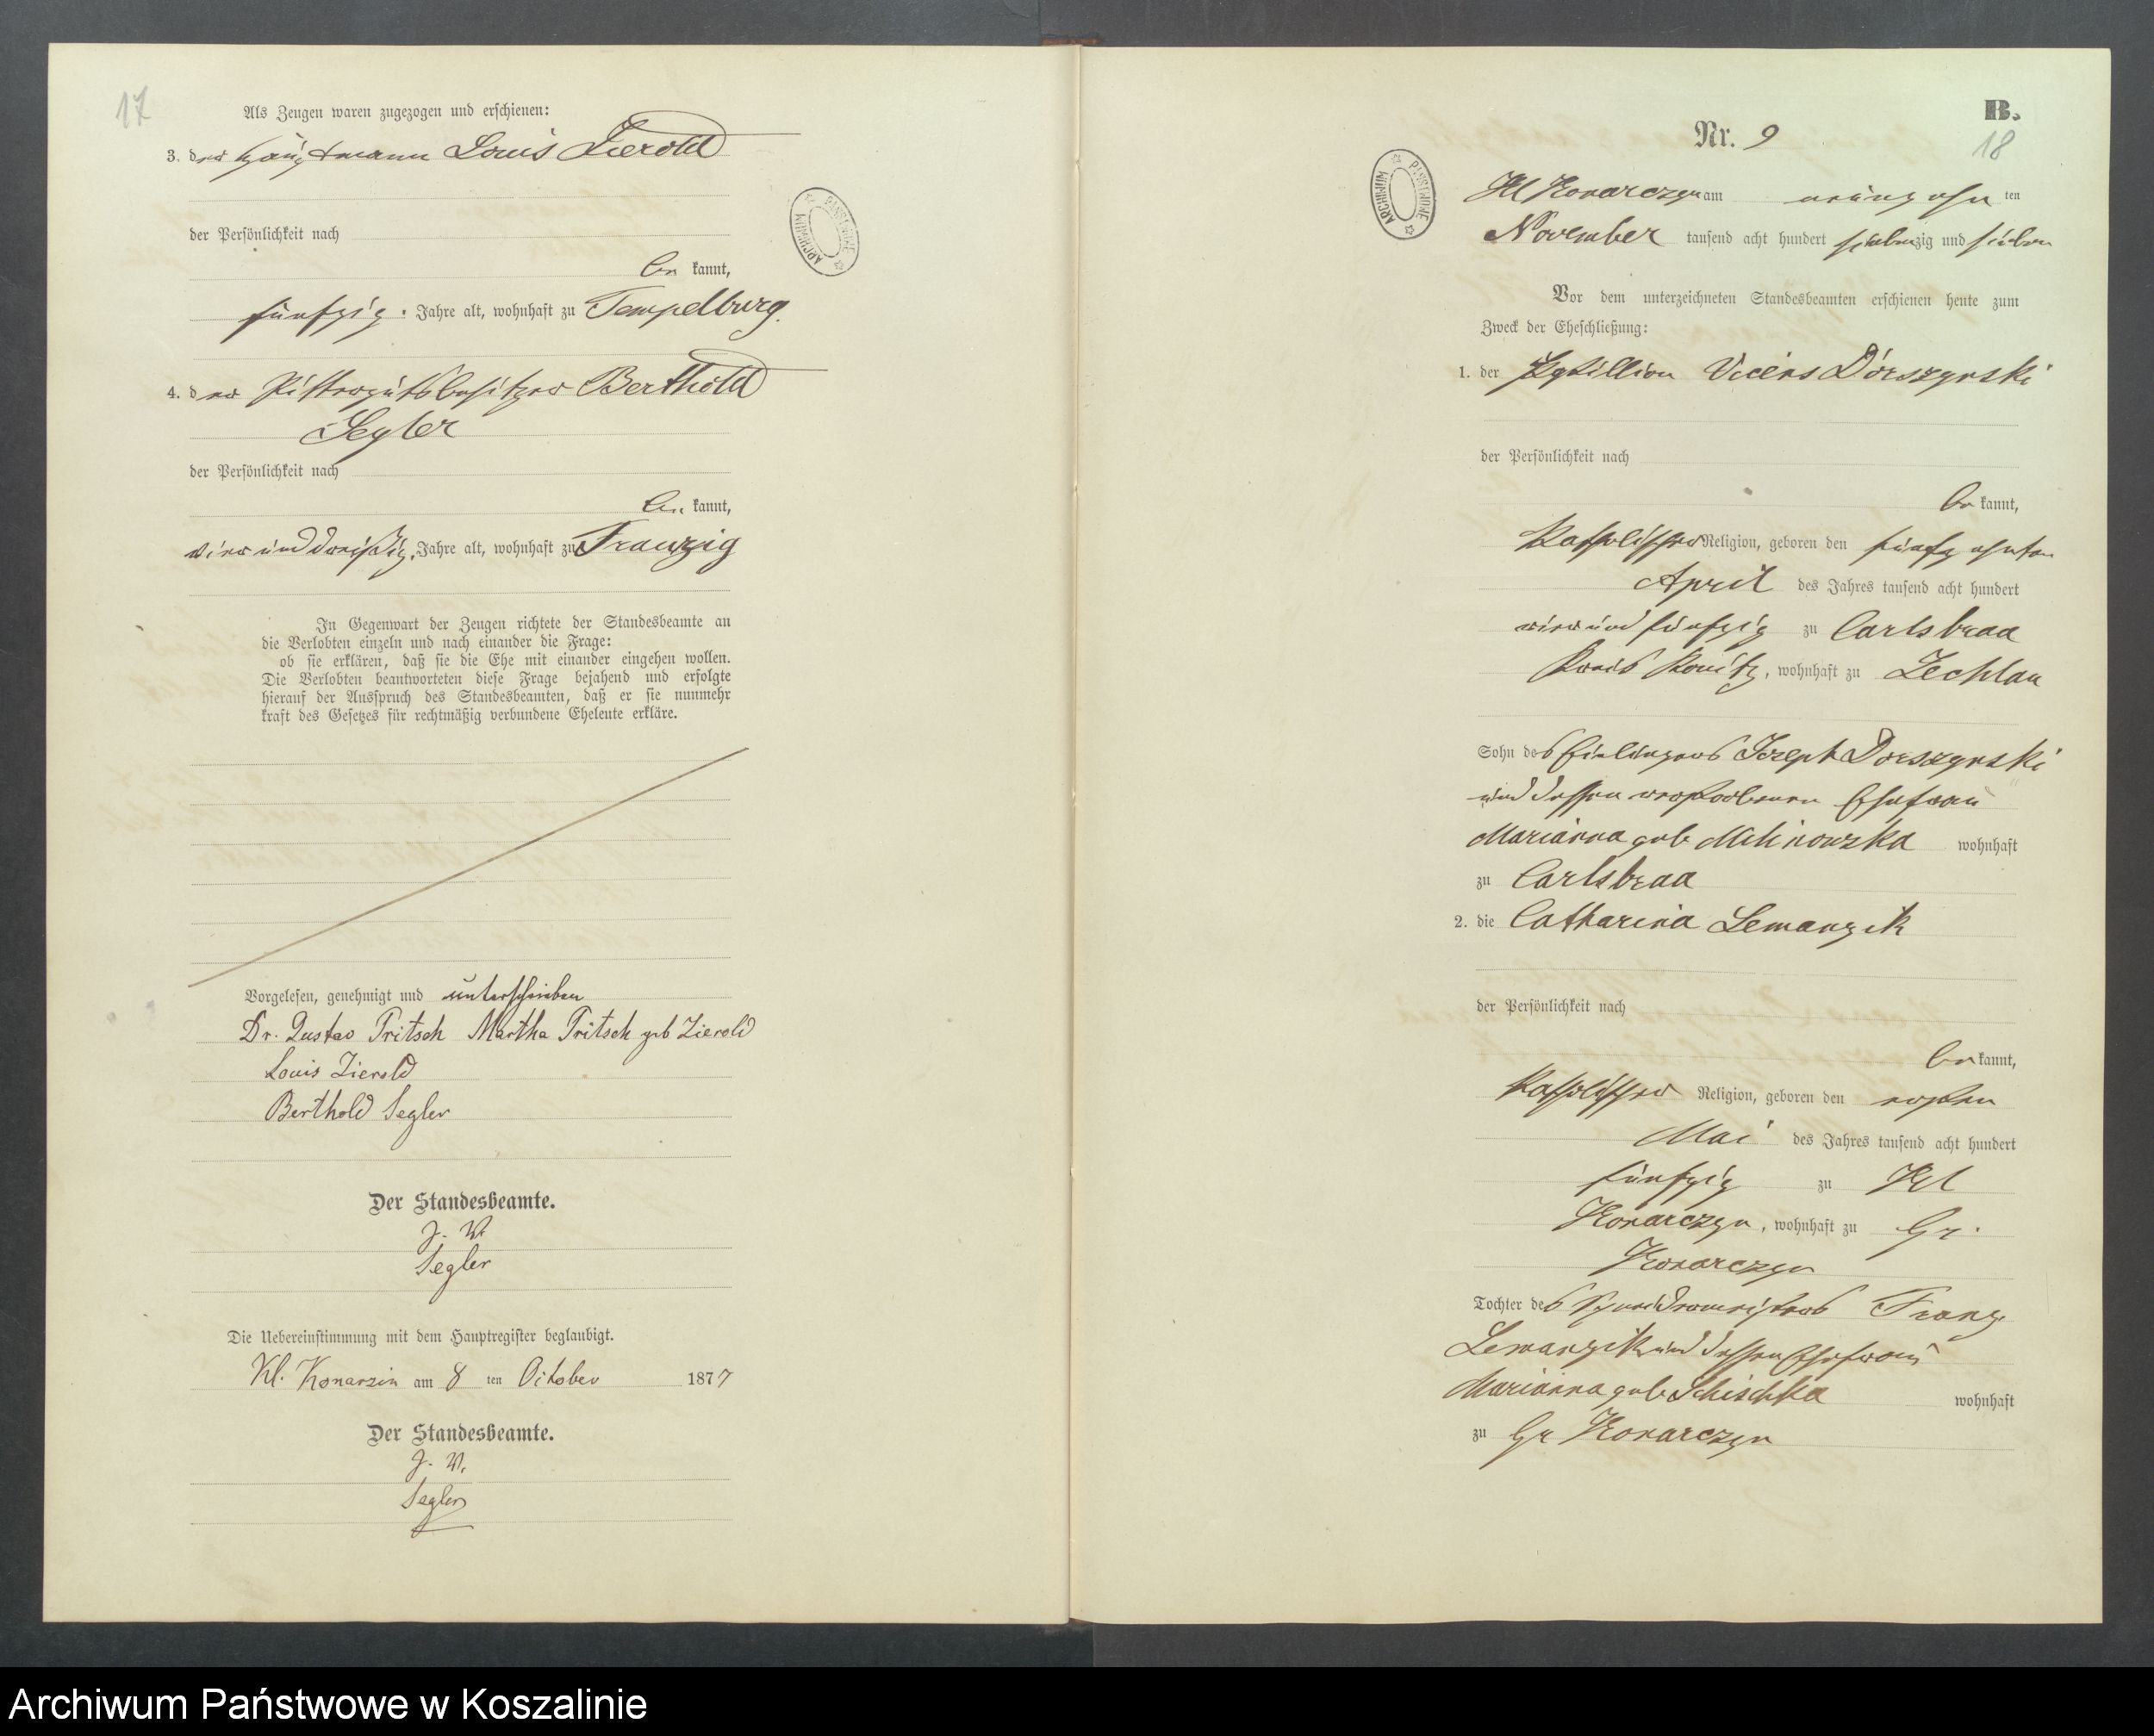 17
Als Zeugen waren zugezogen und erschienen:
3. der Hauptmann Louis Zierold
der Persönlichkeit nach
be kannt,
fünfzig Jahre alt, wohnhaft zu Tempelburg.
4. der Rittergutsbesitzer Berthold
Segler
der Persönlichkeit nach
be kannt,
vier und dreißig Jahre alt, wohnhaft zu Franzig
In Gegenwart der Zeugen richtete der Standesbeamte an
die Verlobten einzeln und nach einander die Frage:
ob sie erklären, daß sie die Ehe mit einander eingehen wollen.
Die Verlobten beantworteten diese Frage bejahend und erfolgte
hierauf der Ausspruch des Standesbeamten, daß er sie nunmehr
kraft des Gesetzes für rechtmäßig verbundene Eheleute erkläre.
Vorgelesen, genehmigt und unterschrieben
Dr. Gustav Fritsch Martha Fritsch geb Zierold
Louis Zierold
Berthold Segler
Der Standesbeamte.
J. V.
Segler
Die Uebereinstimmung mit dem Hauptregister beglaubigt.
Kl. Konarzin am 8 ten October 1877
Der Standesbeamte.
J. V.
Segler
ARCHIWUM PAŃSTWOWE
B.
Nr. 9
18
ARCHIWUM PAŃSTWOWE
Kl Konarczyn am neunzehn ten
November tausend acht hundert siebenzig und sieben
Vor dem unterzeichneten Standesbeamten erschienen heute zum
Zweck der Eheschließung:
1. der Postillion Vicens Dorszynski
der Persönlichkeit nach
be kannt,
katholischer Religion, geboren den fünfzehnten
April des Jahres tausend acht hundert
vier und fünfzig zu Carlsbraa
Kreis Konitz, wohnhaft zu Zechlau
Sohn des Einliegers Joseph Dorszynski
und dessen verstorbenen Ehefrau
Marianna geb Milinowska wohnhaft
zu Carlsbraa
2. die Catharina Lemanzik
der Persönlichkeit nach
be kannt,
katholischer Religion, geboren den ersten
Mai des Jahres tausend acht hundert
fünfzig zu Kl
Konarczyn, wohnhaft zu Gr.
Konarczyn
Tochter des Franz
Lemanzik und dessen Ehefrau
Marianna geb Schischka wohnhaft
zu Gr Konarczyn
Archiwum Państwowe w Koszalinie